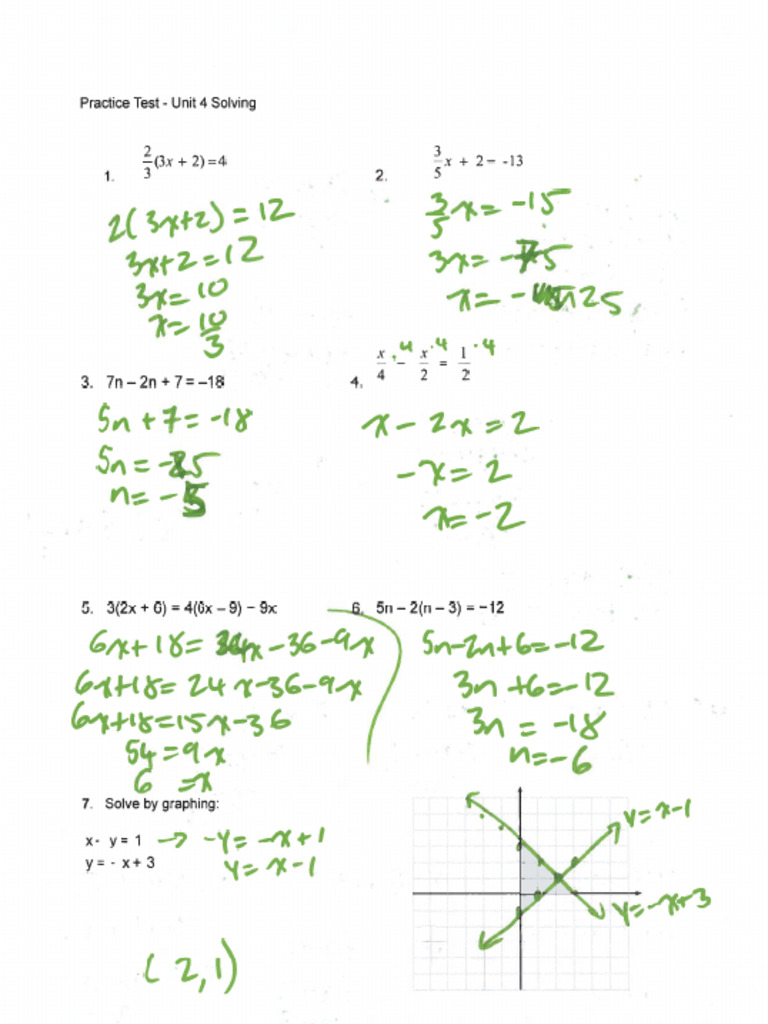 Practice Test - Unit 4 Solving
1. 2/3 (3x + 2) = 4
2(3x+2) = 12
3x+2 = 12
3x = 10
x = 10/3
2. 3/5 x + 2 = -13
3/5 x = -15
3x = -75
x = -25
3. 7n – 2n + 7 = –18
5n + 7 = -18
5n = -25
n = -5
4. x/4 ·4 – x/2 ·4 = 1/2 ·4
x - 2x = 2
-x = 2
x = -2
5. 3(2x + 6) = 4(6x – 9) – 9x
6x+18 = 24x-36-9x
6x+18 = 24x-36-9x
6x+18=15x-36
54 = 9x
6 = x
6. 5n – 2(n – 3) = –12
5n-2n+6=-12
3n+6=-12
3n = -18
n=-6
7. Solve by graphing:
x - y = 1 → -y = -x+1
y = - x + 3
y = x-1
(2,1)
y=x-1
y=-x+3